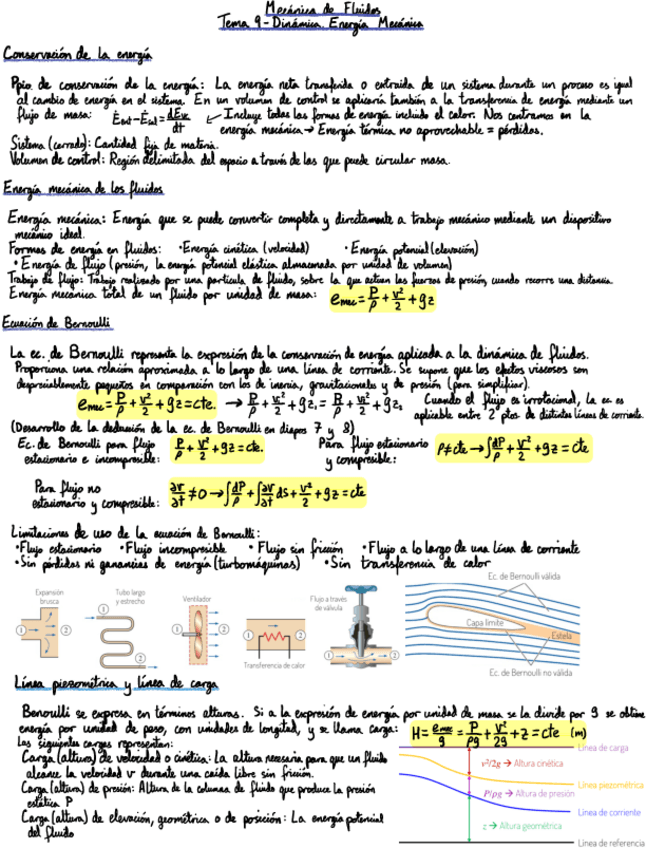 Mecánica de Fluidos
Tema 9 - Dinámica Energía Mecánica
Conservación de la energía
Ppio. de conservación de la energía: La energía neta transferida o extraida de un sistema durante un proceso es igual
al cambio de energía en el sistema. En un volumen de control se aplicaría también a la transferencia de energía mediante un
flujo de masa: Ėent - Ėsal = dEvc/dt ↙ Incluye todas las formas de energía incluido el calor. Nos centramos en la
energía mecánica → Energía térmica no aprovechable = pérdidas.
Sistema (cerrado): Cantidad fija de materia.
Volumen de control: Región delimitada del espacio a través de las que puede circular masa.
Energía mecánica de los fluidos
Energía mecánica: Energía que se puede convertir completa y directamente a trabajo mecánico mediante un dispositivo
mecánico ideal.
Formas de energía en fluidos: • Energía cinética (velocidad) • Energía potencial (elevación)
• Energía de flujo (presión, la energía potencial elástica almacenada por unidad de volumen)
Trabajo de flujo: Trabajo realizado por una partícula de fluido, sobre la que actúan las fuerzas de presión, cuando recorre una distancia.
Energía mecánica total de un fluido por unidad de masa: emec = P/ρ + v²/2 + gz
Ecuación de Bernoulli
La ec. de Bernoulli representa la expresión de la conservación de energía aplicada a la dinámica de fluidos.
Proporciona una relación aproximada a lo largo de una línea de corriente. Se supone que los efectos viscosos son
despreciablemente pequeños en comparación con los de inercia, gravitacionales y de presión (para simplificar).
emec = P/ρ + v²/2 + gz = cte. → P/ρ + v²/2 + gz₁ = P/ρ + v²/2 + gz₂ Cuando el flujo es irrotacional, la ec. es
aplicable entre 2 ptos de distintas líneas de corriente.
(Desarrollo de la deducción de la ec. de Bernoulli en diapos 7 y 8)
Ec. de Bernoulli para flujo P/ρ + v²/2 + gz = cte. Para flujo estacionario ρ≠cte → ∫dP/ρ + v²/2 + gz = cte
estacionario e incompresible: y compresible:
Para flujo no ∂v/∂t ≠ 0 → ∫dP/ρ + ∫∂v/∂t ds + v²/2 + gz = cte
estacionario y compresible:
Limitaciones de uso de la ecuación de Bernoulli:
• Flujo estacionario • Flujo incompresible • Flujo sin fricción • Flujo a lo largo de una línea de corriente
• Sin pérdidas ni ganancias de energía (turbomáquinas) • Sin transferencia de calor
Ec. de Bernoulli válida
Expansión brusca
1
2
Tubo largo y estrecho
1
2
Ventilador
1
2
Transferencia de calor
1
2
Flujo a través de válvula
1
2
Capa límite
Estela
Ec. de Bernoulli no válida
Línea piezométrica y línea de carga
Benoulli se expresa en términos alturas. Si a la expresión de energía por unidad de masa se la divide por g se obtiene
energía por unidad de peso, con unidades de longitud, y se llama carga: H = emec/g = P/ρg + v²/2g + z = cte (m)
Las siguientes cargas representan:
Carga (altura) de velocidad o cinética: La altura necesaria para que un fluido
alcance la velocidad v durante una caída libre sin fricción.
Carga (altura) de presión: Altura de la columna de fluido que produce la presión
estática P
Carga (altura) de elevación, geométrica o de posición: La energía potencial
del fluido
Línea de carga
v²/2g → Altura cinética
Línea piezométrica
P/ρg → Altura de presión
Línea de corriente
z → Altura geométrica
Línea de referencia